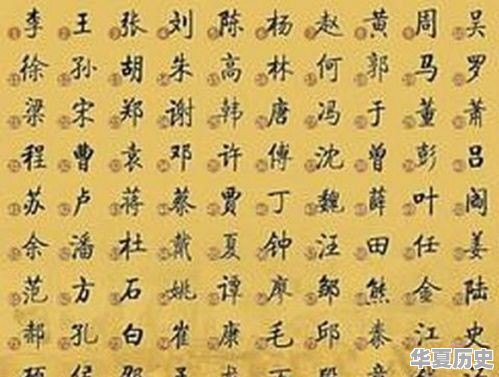 李 王 张 刘 陈 杨 赵 黄 周 吴
徐 孙 胡 朱 高 林 何 郭 马 罗
梁 宋 郑 谢 韩 唐 冯 于 董 萧
程 曹 袁 邓 许 傅 沈 曾 彭 吕
苏 卢 蒋 蔡 贾 丁 魏 薛 叶 阎
余 潘 杜 戴 夏 钟 汪 田 任 姜
范 方 石 姚 谭 廖 邹 熊 金 陆
郝 孔 白 崔 康 毛 邱 秦 江 史
华夏历史